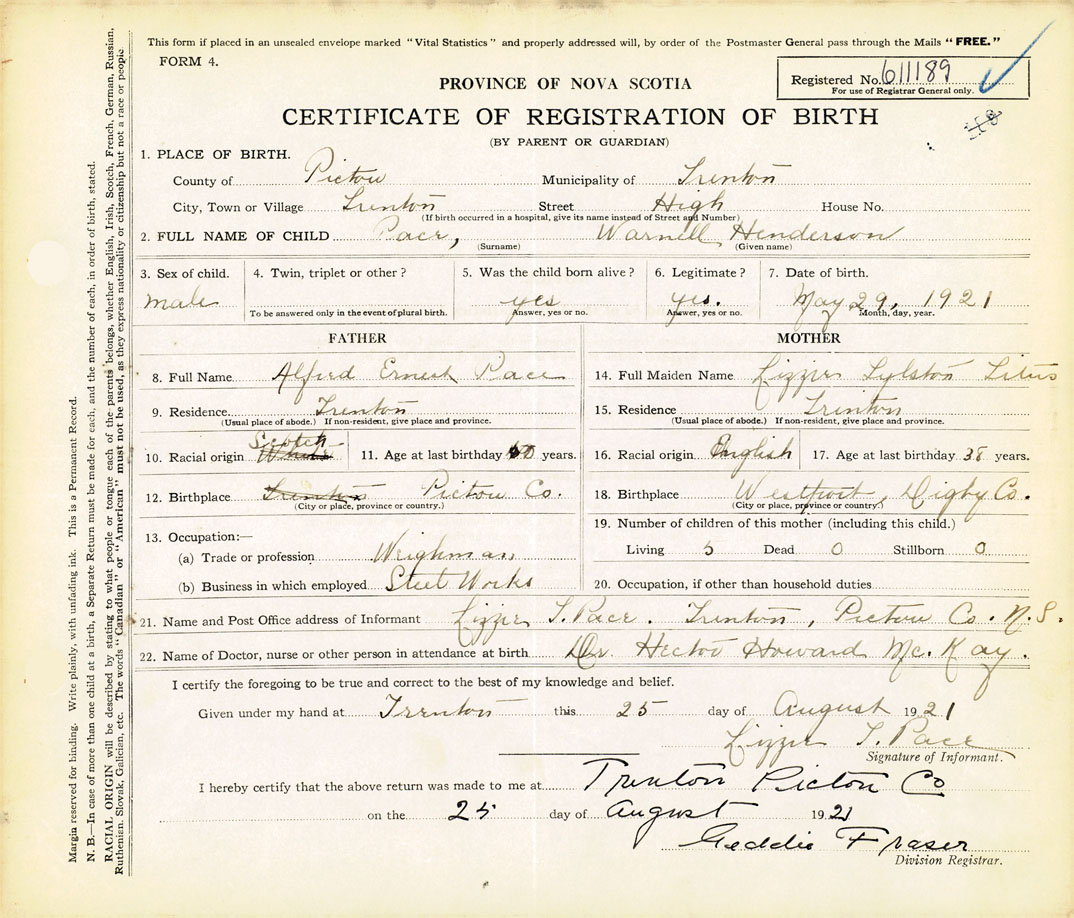 This form if placed in an unsealed envelope marked "Vital Statistics" and properly addressed will, by order of the Postmaster General pass through the Mails "FREE."
FORM 4.
Registered No. 611189
For use of Registrar General only.
PROVINCE OF NOVA SCOTIA
CERTIFICATE OF REGISTRATION OF BIRTH
(BY PARENT OR GUARDIAN)
1. PLACE OF BIRTH.
County of Pictou Municipality of Trenton
City, Town or Village Trenton Street High House No.
(If birth occurred in a hospital, give its name instead of Street and Number)
2. FULL NAME OF CHILD Pace, Warnell Henderson
(Surname) (Given name)
3. Sex of child. 4. Twin, triplet or other? 5. Was the child born alive? 6. Legitimate? 7. Date of birth.
male yes yes. May 29, 1921
To be answered only in the event of plural birth. Answer, yes or no. Answer, yes or no. Month, day, year.
FATHER MOTHER
8. Full Name Alfred Ernest Pace 14. Full Maiden Name Lizzie Sylston Titus
9. Residence Trenton 15. Residence Trenton
(Usual place of abode.) If non-resident, give place and province. (Usual place of abode.) If non-resident, give place and province.
10. Racial origin White Scotch 11. Age at last birthday years. 16. Racial origin English 17. Age at last birthday 38 years.
12. Birthplace Trenton Pictou Co. 18. Birthplace Westport, Digby Co.
(City or place, province or country.) (City or place, province or country.)
13. Occupation:— 19. Number of children of this mother (including this child.)
(a) Trade or profession Weighman Living 5 Dead 0 Stillborn 0
(b) Business in which employed Steel Works 20. Occupation, if other than household duties
21. Name and Post Office address of Informant Lizzie S. Pace. Trenton, Pictou Co. N.S.
22. Name of Doctor, nurse or other person in attendance at birth Dr. Hector Howard Mc.Kay.
I certify the foregoing to be true and correct to the best of my knowledge and belief.
Given under my hand at Trenton this 25 day of August 1921
Lizzie S. Pace
Signature of Informant.
I hereby certify that the above return was made to me at Trenton Pictou Co
on the 25 day of August 1921
Geddie Fraser
Division Registrar.
Margin reserved for binding. Write plainly, with unfading ink. This is a Permanent Record.
N. B.—In case of more than one child at a birth, a Separate Return must be made for each, and the number of each, in order of birth, stated.
RACIAL ORIGIN will be described by stating to what people or tongue each of the parents belongs, whether English, Irish, Scotch, French, German, Russian,
Ruthenian, Slovak, Galician, etc. The words "Canadian" or "American" must not be used, as they express nationality or citizenship but not a race or people.